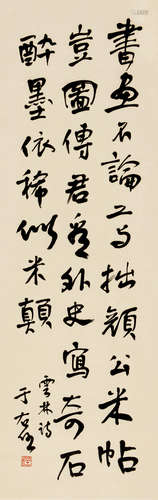 書画不論工与拙顏公米帖
豈圖傳君看外史寫奇石
醉墨依稀似米顛
雲林詩
于右任